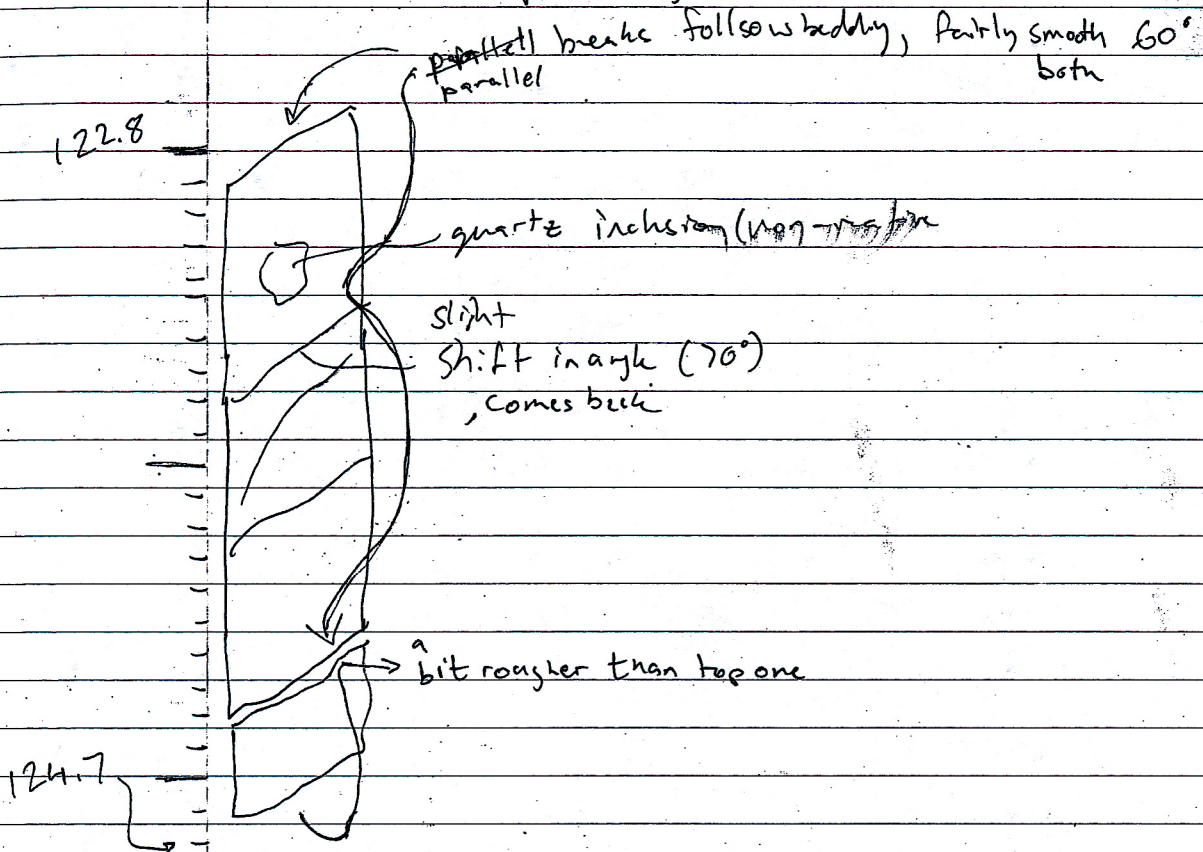 parallell breaks follsow bedding, fairly smooth 60°
parallel
both
122.8
quartz inclusion (non-native
slight
shift in angle (70°)
, comes back
a
bit rougher than top one
124.7